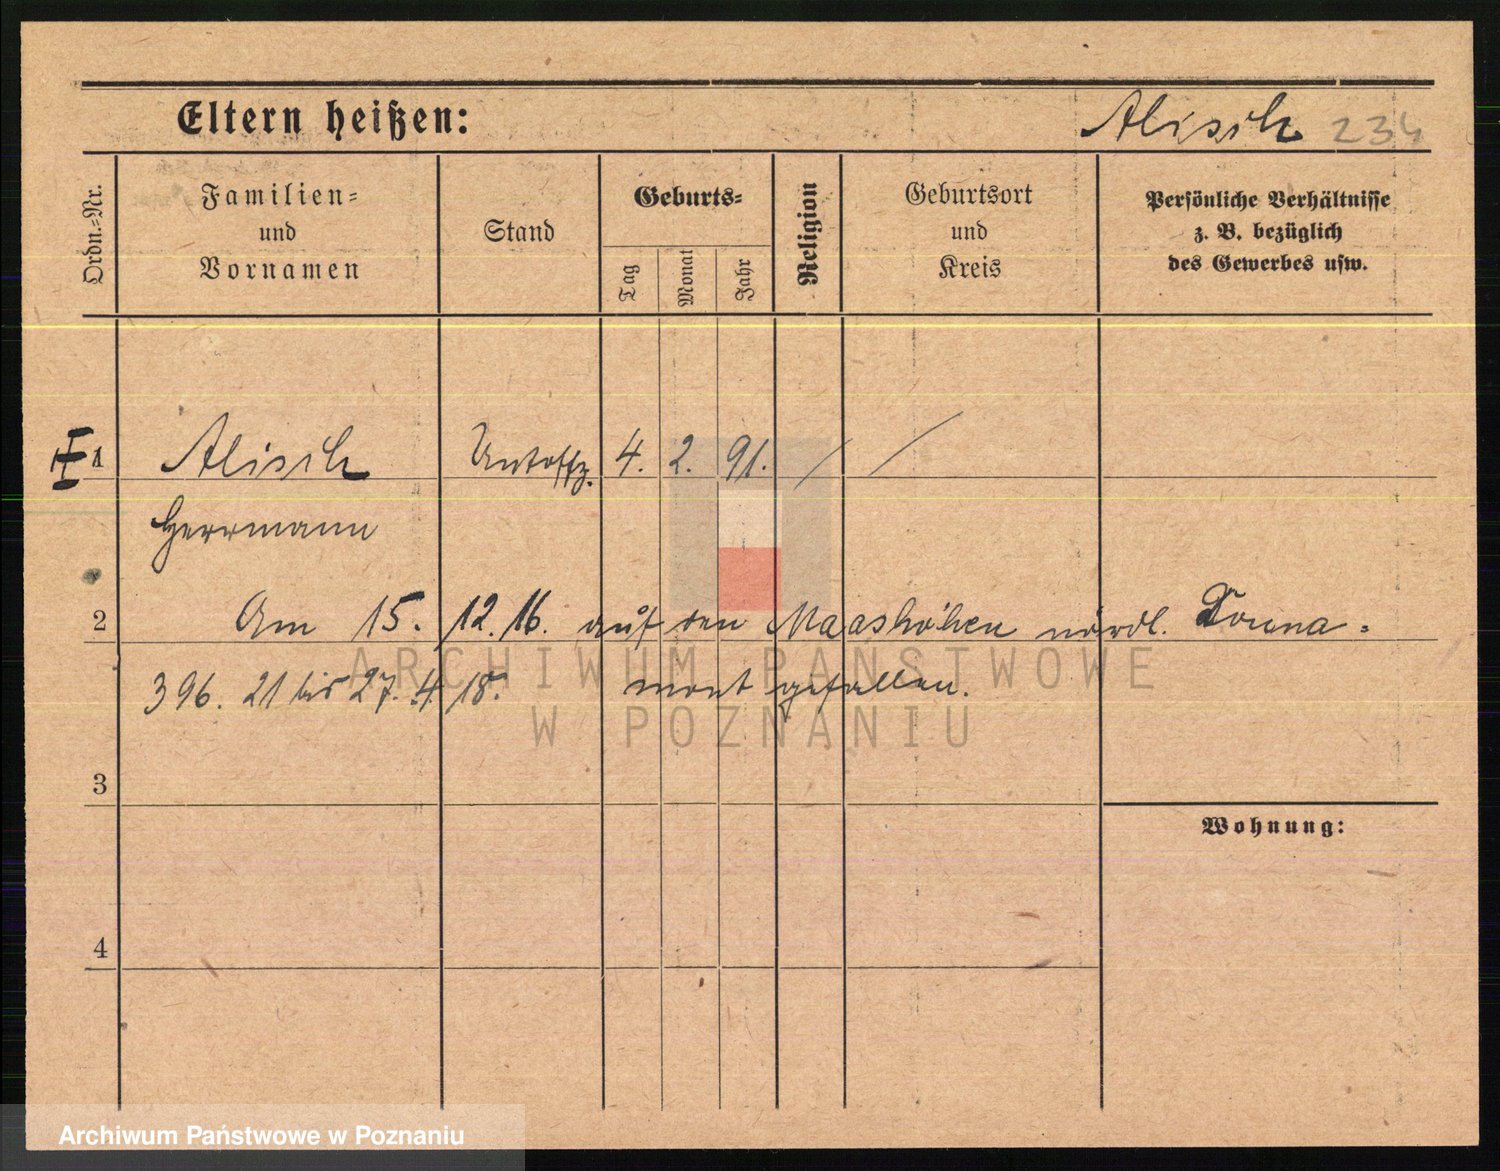 Eltern heißen:
Alisch 234
Ordn.=Nr.
Familien=
und
Vornamen
Stand
Geburts=
Tag
Monat
Jahr
Religion
Geburtsort
und
Kreis
Persönliche Verhältnisse
z. B. bezüglich
des Gewerbes usw.
1 Alisch Untoffz. 4. 2. 91. / /
Herrmann
2 Am 15. 12. 16. auf den Maashöhen nördl. Douna=
396. 21 bis 27. 4. 18. mont gefallen.
3
Wohnung:
4
ARCHIWUM PAŃSTWOWE
W POZNANIU
Archiwum Państwowe w Poznaniu